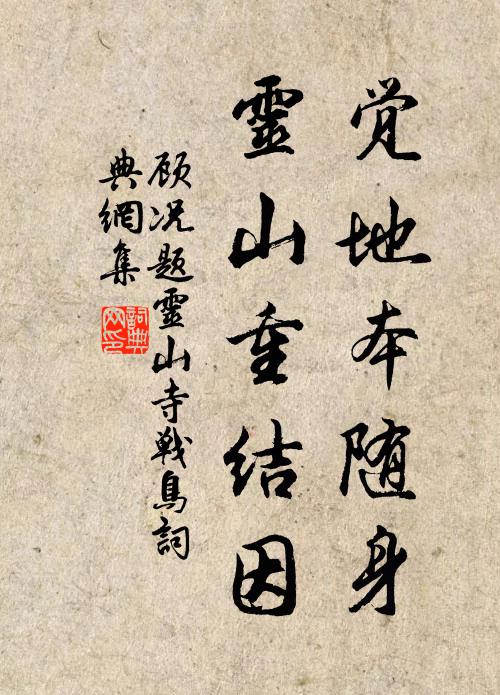 觉地本随身
靈山重结因
顾况题靈山寺戦鳥詞
典網集
詞典
网印